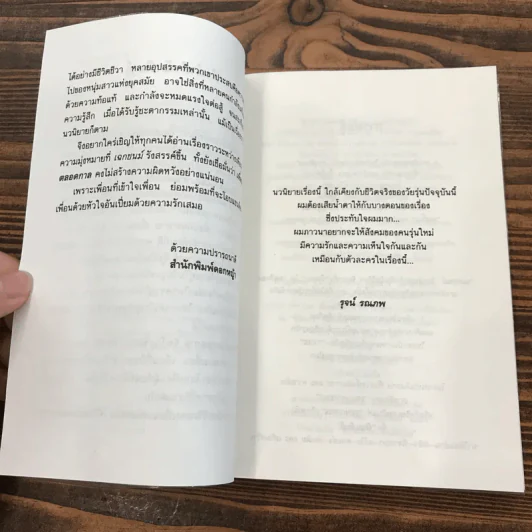 ได้อย่างมีชีวิตชีวา หลายอุปสรรคที่พวกเขาประสบคือ
ไปของหนุ่มสาวแห่งยุคสมัย อาจใช่สิ่งที่หลายคนกำลัง
ด้วยความท้อแท้ และกำลังจะหมดแรงใจต่อสู้
ความรู้สึก เมื่อได้รับรู้ชะตากรรมเหล่านั้น แม้เป็นเพียง
นวนิยายก็ตาม
จึงอยากใคร่เชิญให้ทุกคนได้อ่านเรื่องราวระหว่าง
ความมุ่งหมายที่ เฉกชนม์ รังสรรค์ขึ้น ทั้งยังเชื่อมั่นว่า
ตลอดกาล คงไม่สร้างความผิดหวังอย่างแน่นอน
เพราะเพื่อนที่เข้าใจเพื่อน ย่อมพร้อมที่จะ
เพื่อนด้วยหัวใจอันเปี่ยมด้วยความรักเสมอ
ด้วยความปรารถนาดี
สำนักพิมพ์ดอกหญ้า
นวนิยายเรื่องนี้ ใกล้เคียงกับชีวิตจริงของวัยรุ่นปัจจุบันนี้
ผมต้องเสียน้ำตาให้กับบางตอนของเรื่อง
ซึ่งประทับใจผมมาก...
ผมภาวนาอยากจะให้สังคมของคนรุ่นใหม่
มีความรักและความเห็นใจกันและกัน
เหมือนกับตัวละครในเรื่องนี้...
รุจน์ รณภพ